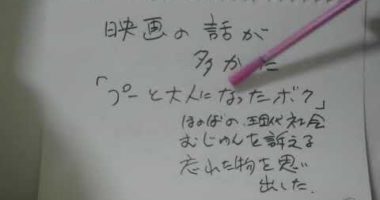 映画の話が
多かった
「プーと大人になったボク」
ほのぼの、現代社会
むじゅんを訴える
忘れた物を思い
出した.